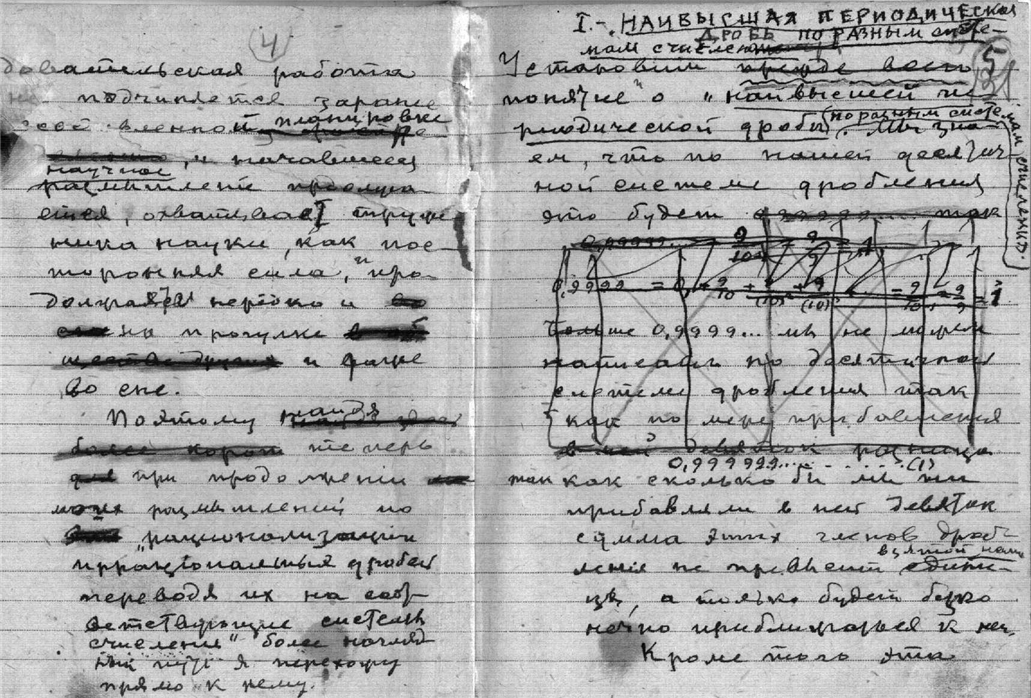 4
довательская работа
не подчиняется заранее
планировке
, и начавшееся
научное
размышление продолжа
ется, охватывает труже
ника науки, как пос-
торонняя сила, и про-
должается нередко и
на прогулке
и даже
во сне.
Поэтому найдя
теперь
при продолжении
моих размышлений по
"рационализации
иррациональных дробей
переводя их на соот
ветствующие системы
счисления" более нагляд
ный путь я перехожу
прямо к нему.
I.- НАИВЫСШАЯ ПЕРИОДИЧЕСКАЯ
ДРОБЬ ПО РАЗНЫМ СИСТЕ-
МАМ СЧИСЛЕНИЯ
5
Установим прежде всего
понятие о "наивысшей пе-
риодической дроби по разным системам счисления.
Мы зна-
ем, что по нашей десятич
ной системе дробления
это будет 0,99999... так
0,99999...
0,9999 = 0, + 9/10 + + =
Больше 0,9999... мы не можем
написать по десятичной
системе дробления так
как по мере прибавления
в ней девяток разница
0,999999.......... (1)
так как сколько бы мы ни
прибавляли в ней девяток
сумма этих членов дроб-
ления не превысит
взятой нами
едини-
цы, а только будет беско
нечно приближаться к ней.
Кроме того эта